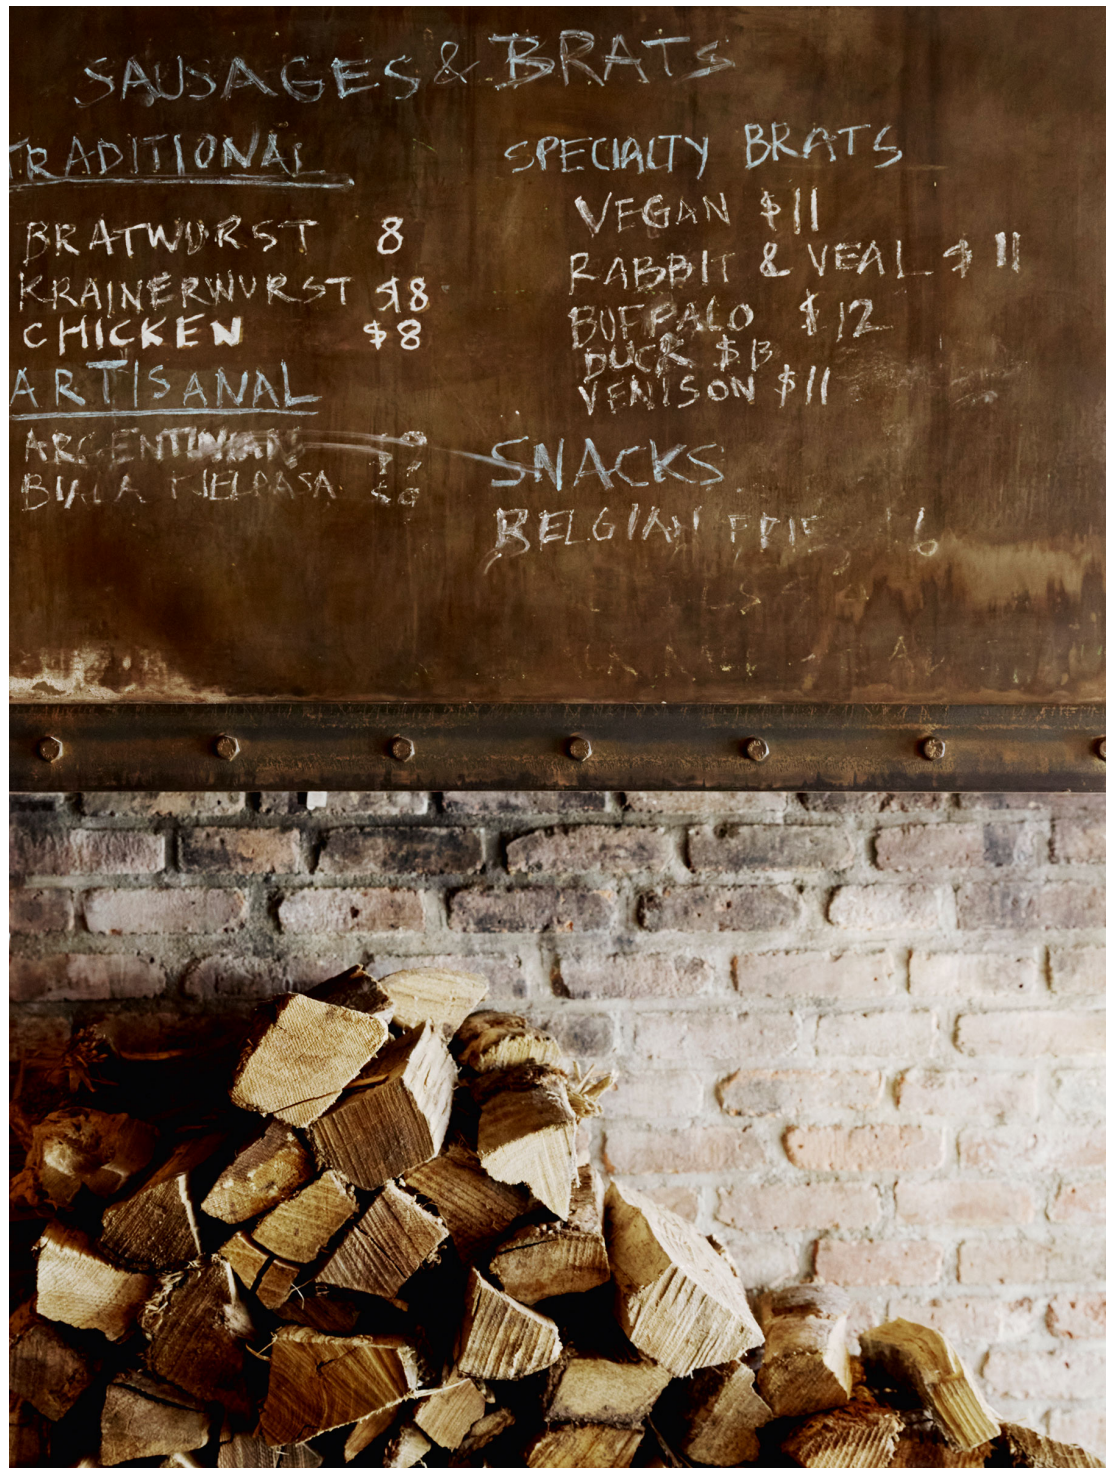 SAUSAGES & BRATS
TRADITIONAL
BRATWURST 8
KRAINERWURST $8
CHICKEN $8
ARTISANAL
ARGENTINIAN
SPECIALTY BRATS
VEGAN $11
RABBIT & VEAL $11
BUFFALO $12
DUCK $13
VENISON $11
SNACKS
BELGIAN 6